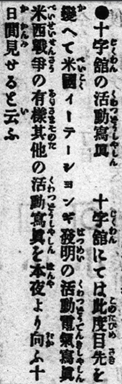 ●十字館の活動寫眞　十字館にては此度目先を
變へて米國イーテーションギ發明の活動電氣寫眞
米西戰爭の有樣其他の活動寫眞を本夜より向ふ十
日間見せると云ふ